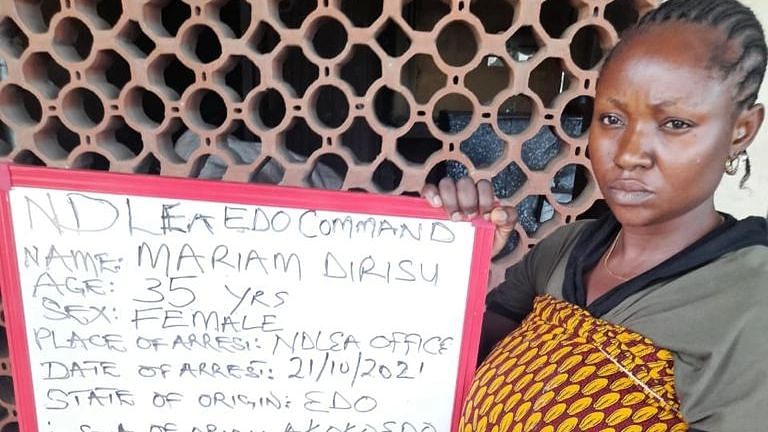 NDLEA EDO COMMAND
NAME: MARIAM DIRISU
AGE: 35 YRS
SEX: FEMALE
PLACE OF ARREST: NDLEA OFFICE
DATE OF ARREST: 21/10/2021
STATE OF ORIGIN: EDO
OF ORIGIN: AKOKOEDO